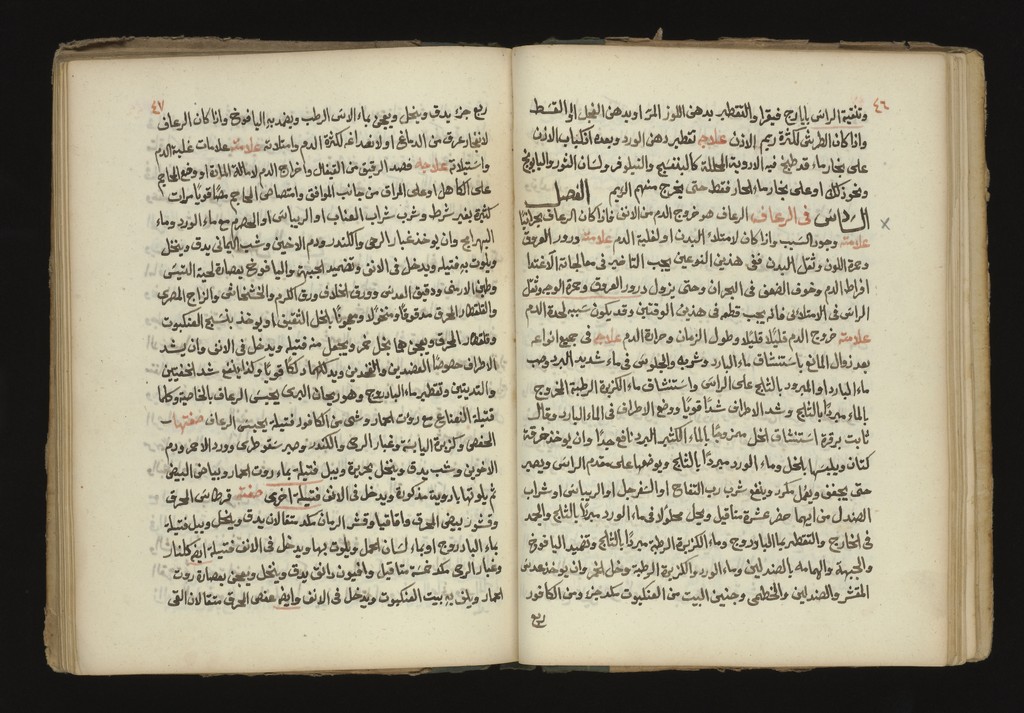 ٤٦
وتنقية الراس بايارج فيقرا والتقطير بدهن اللوز المر او بدهن الفجل او القسط
واذا كان الطرش لكثرة ريم الاذن علاجه تقطير دهن الورد وبعده انقلباب الاذن
على بخار ماء قد طبخ فيه الادوية المحللة كالبنفسج والنيلوفر ولسان الثور والبابونج
ونحو ذلك او على بخار ماء الحار فقط حتى يخرج منهم الريم الفصل
السادس فى الرعاف الرعاف هو خروج الدم من الانف فاذا كان الرعاف بحرانيا
علامته وجود السبب واذا كان لامتلاء البدن او لغلبة الدم علامته ودرور العروق
وحمرة اللون وثقل البدن ففى هذين النوعين يجب التاخير فى معالجاته الا عند
افراط الدم وخوف الضعف فى البحران وحتى يزول درور العروق وحمرة الوجه وثقل
الراس فى الامتلائى فانه يجب قطعه فى هذين الوقتين وقد يكون سببه لحدة الدم
علامته خروج الدم قليلا قليلا وطول الزمان وحرارة الدم علاجه فى جميع انواعه
بعد زوال المانع باستنشاق ماء البارد وشربه والجلوس فى ماء شديد البرد وصب
ماء البارد او المبرود بالثلج على الراس واستنشاق ماء الكزبرة الرطبة الممزوج
بالماء مبردا بالثلج وشد الاطراف شدا قويا ووضع الاطراف فى الماء البارد وقال
ثابت بن قرة استنشاق الخل ممزوجا بالماء الكثير البرد نافع جدا وان يوخذ خرقة
كتان ويبلها بالخل وماء الورد مبردا بالثلج ويوضعها على مقدم الراس ويصبر
حتى يجفف ويفعل مكررا وينفع شرب رب التفاح او السفرجل او الريباس او شراب
الصندل من ايهما حضر عشرة مثاقيل ويجل محلولا فى ماء الورد مبردا بالثلج والجمد
فى الخارج والتقطير بماء البادروج وماء الكزبرة الرطبة مبردا بالثلج وتضميد اليافوخ
والجبهة والهامه بالصندلين وماء الورد والكزبرة الرطبة وخل الخمر وان يوخذ عدس
المقشر والصندلين والخطمى وجنين البيت من العنكبوت مكد جزء ومن الكافور
ربع
٤٧
ربع جزء يدق وينخل ويعجن بماء الاس الرطب ويضمد به اليافوخ واذا كان الرعاف
لانفجار عرق من الدماغ او لانصداعه لكثرة الدم وامتلائه علامته علامات غلبة الدم
وامتيلائه علاجه فصد الرقيق من القيفال واخراج الدم لامالة المادة او وضع المحاجم
على الكاهل او على المراق من جانب الموافق وامتصاص المحاجم مصا قويا مرات
كثرة بغير شرط وشرب شراب العناب او الريباس او الحصرم مع ماء الورد وماء
البهرامج وان يوخذ غبار الرحى والكندر ودم الاخوين وشب اليمانى يدق ويغتل
ويلوث به فتيله ويدخل فى الانف وتضميد الجبهة واليافوخ بعصارة لحية التيس
وطين الارمنى ودقيق العدس وورق الخلاف ورق الكرم والخشخاش والزاج المصرى
والقلقطار المحرق مدقوقا ومنخولا ومعجونا بالخل الثقيف او يوخذ بنسيج العنكبوت
وقلقطار المحرق ويعجن هما بخل خمر ويجعل منه فتيله ويدخل فى الانف وان يشد
الاطراف خصوصا العضدين والفخذين ويدلكهما دلكا قويا وكذا ينفع شد الخصيتين
والثديين وتقطير ماء البادروج وهو ريحان البرى يحبس الرعاف بالخاصية وكلما
فتيلة النعناع مع روث الحمار وشى من الكافور فتيلة يحبس الرعاف صفتها
العفص وكزبرة اليابسة وغبار الرحى والكندر وصبر سقوطرى وورد الاحمر ودم
الاخوين وشب يدق وينخل بحريرة ويبل فتيلة بماء روث الحمار وبياض البيض
ثم يلوثها بادوية مذكورة ويدخل فى الانف فتيلة اخرى صفته قرطاس المحرق
وقشور بيض المحرق واقاقيا وقشر الرمان مكد مثقالان يدق وينخل ويبل فتيلة
بماء البادروج او بماء لسان الحمل ويلوث بها ويدخل فى الانف فتيلة ايضا كلنار
وغبار الرحى مكد خمسة مثاقيل وافيون دانق يدق وينخل ويعجن بعصارة روث
الحمار ويلف به ببيت العنكبوت ويدخل فى الانف وايضا عفص المحرق مثقالان التى